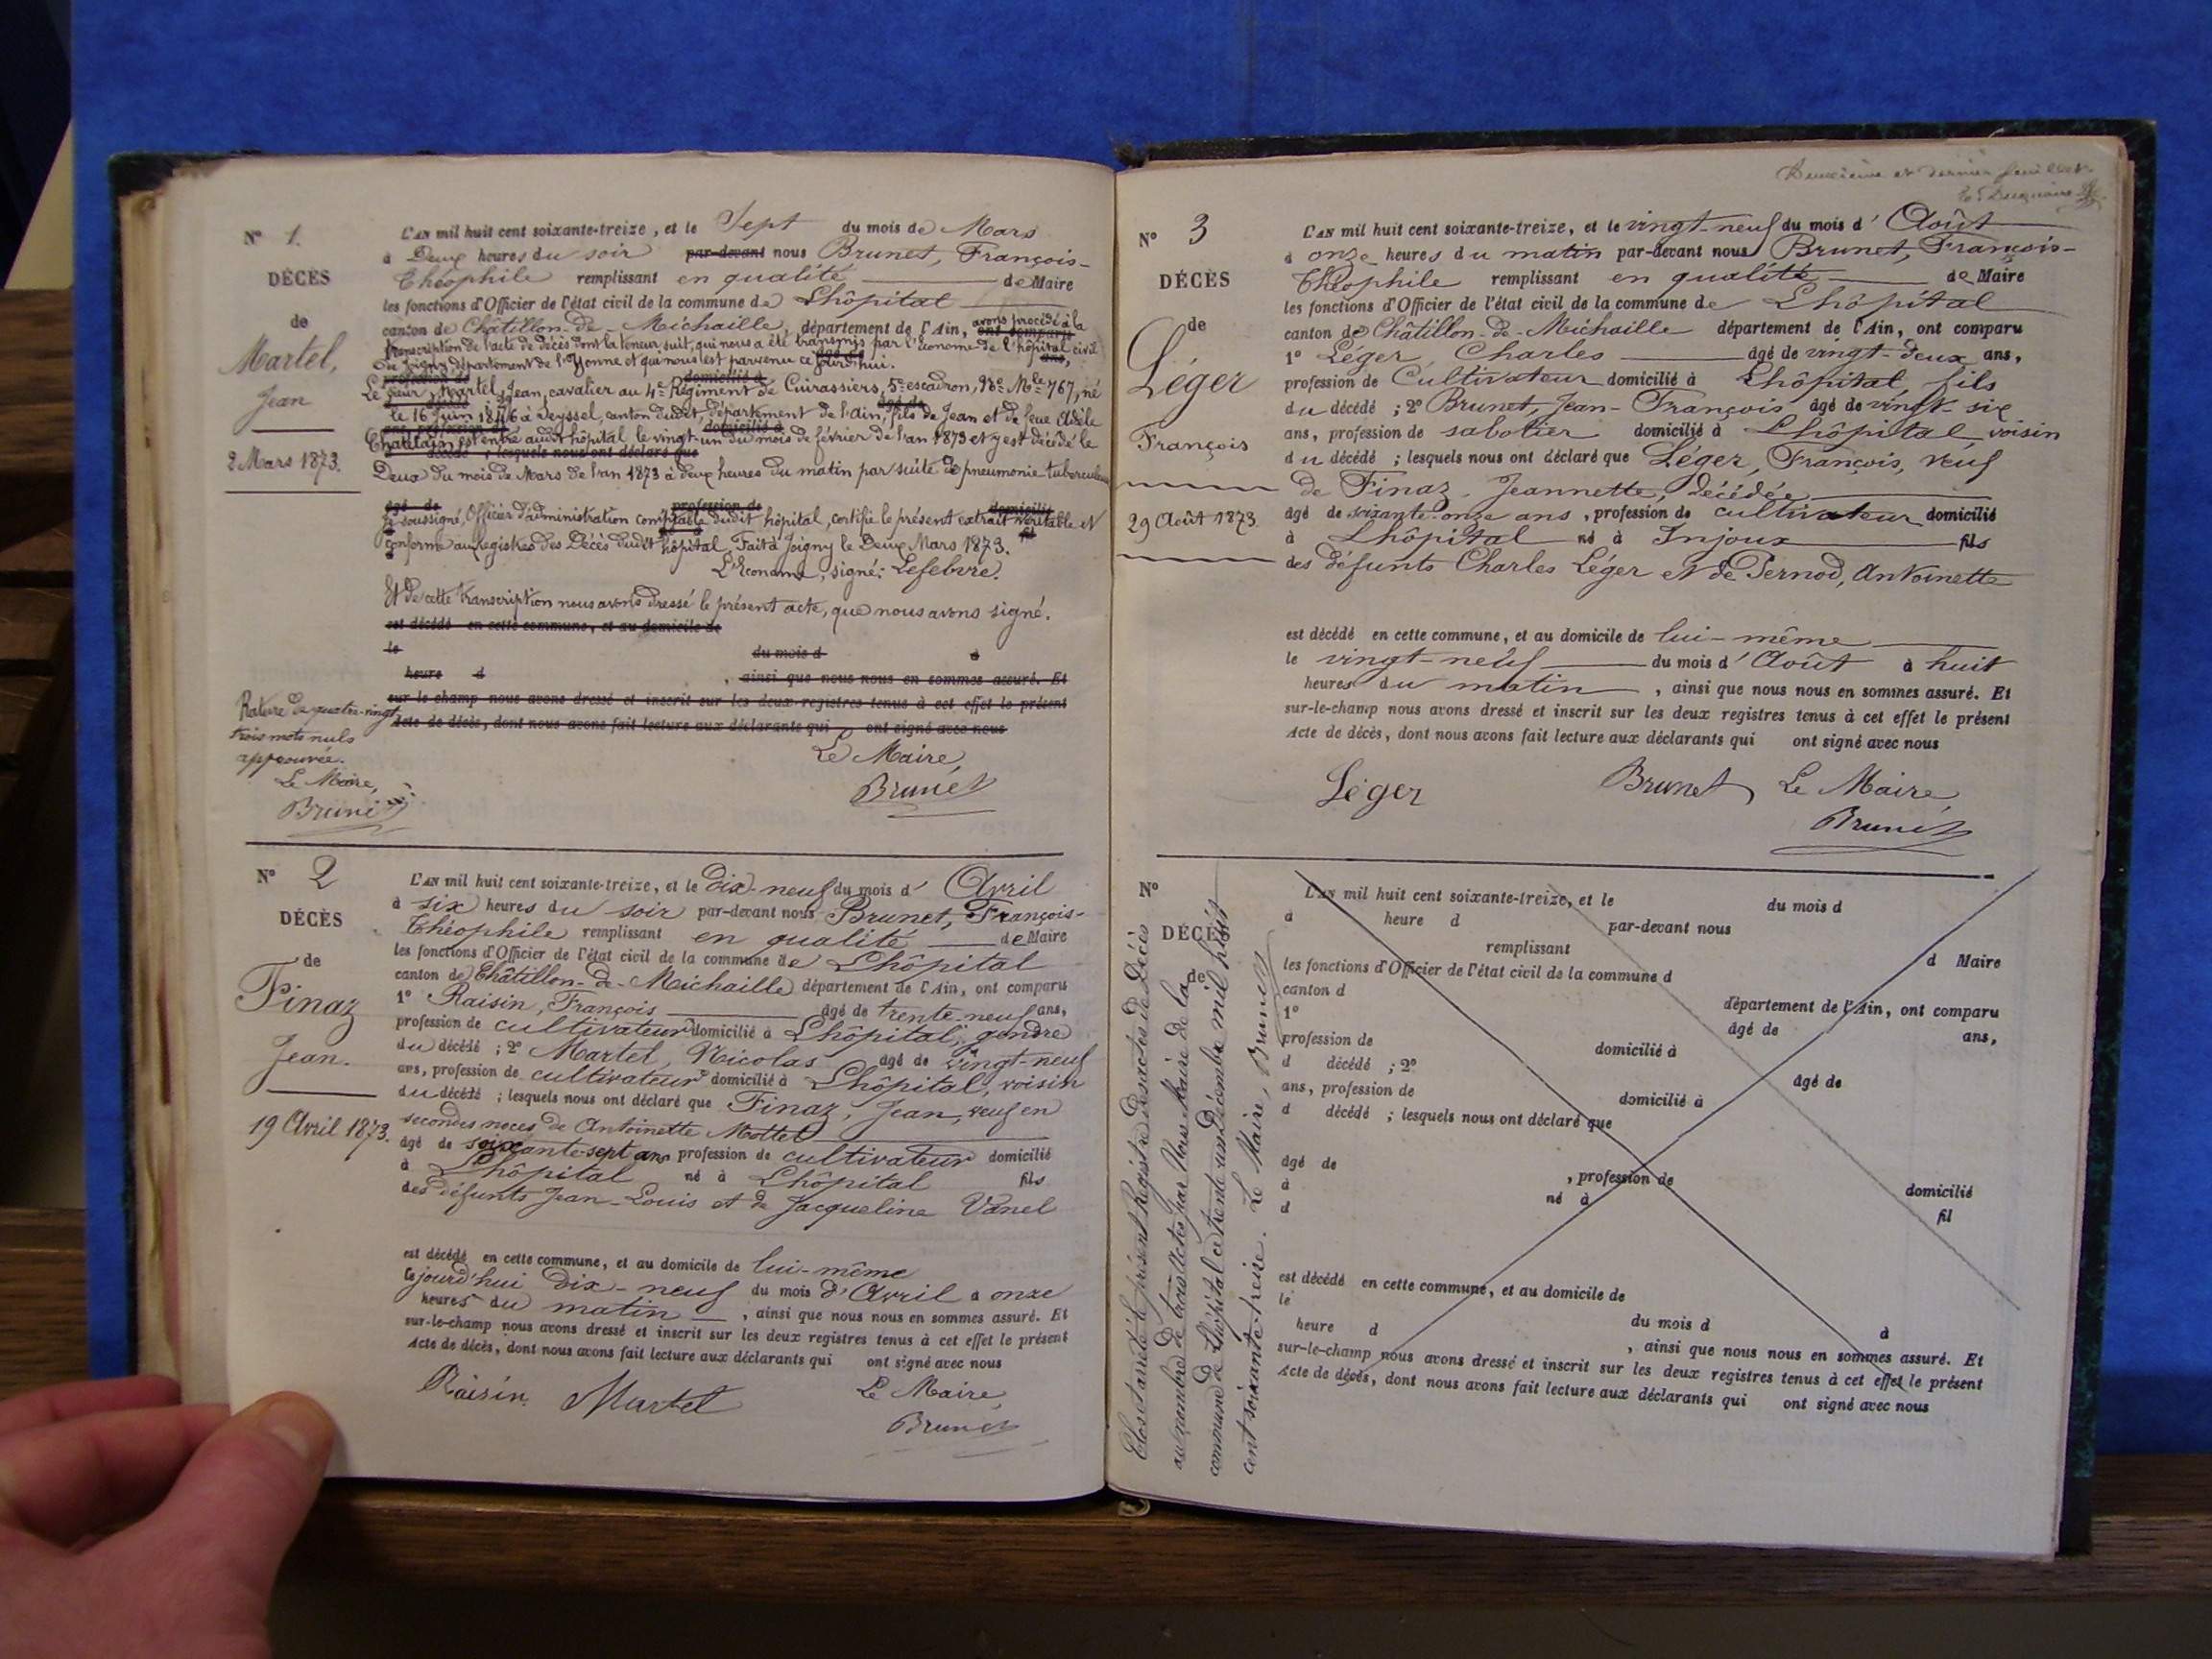 N° 1.
DÉCÈS
de
Martel,
Jean
2 Mars 1873.
L'AN mil huit cent soixante-treize, et le Sept du mois de Mars
à Deux heures du soir par-devant nous Brunet, François-
Théophile remplissant en qualité de Maire
les fonctions d'Officier de l'état civil de la commune de Lhôpital
canton de Châtillon-de-Michaille, département de l'Ain, ont comparu avons procédé à la
transcription de l'acte de décès dont la teneur suit, qui nous a été transmis par l'économe de l'hôpital civil
du Joigny département de l'Yonne et qui nous est parvenu ce jourd'hui.
Le sieur Martel, Jean, cavalier au 4e Régiment de Cuirassiers, 5e escadron, Mle 767, né
le 16 Juin 1846 à Seyssel, canton dudit département de l'Ain, fils de Jean et de feue Adèle
Chatelain, est entré audit hôpital le vingt-un du mois de février de l'an 1873 et y est décédé le
décédé ; lesquels nous ont déclaré que
Deux du mois de Mars de l'an 1873 à deux heures du matin par suite de pneumonie tuberculeuse
âgé de profession de domicilié
Je soussigné, Officier d'administration comptable dudit hôpital, certifie le présent extrait véritable et
conforme au Registre des Décès dudit hôpital. Fait à Joigny le Deux Mars 1873.
L'Econome, signé: Lefebvre.
Et de cette transcription nous avons dressé le présent acte, que nous avons signé.
est décédé en cette commune, et au domicile de
le du mois d à
heure d , ainsi que nous nous en sommes assuré. Et
sur-le-champ nous avons dressé et inscrit sur les deux registres tenus à cet effet le présent
Acte de décès, dont nous avons fait lecture aux déclarants qui ont signé avec nous
Rature de quatre-vingt
trois mots nuls
approuvée.
Le Maire,
Brunet
Le Maire,
Brunet
N° 2
DÉCÈS
de
Finaz
Jean.
19 Avril 1873.
L'AN mil huit cent soixante-treize, et le dix-neuf du mois d' Avril
à six heures du soir par-devant nous Brunet, François-
Théophile remplissant en qualité de Maire
les fonctions d'Officier de l'état civil de la commune de Lhôpital
canton de Châtillon-de-Michaille département de l'Ain, ont comparu
1° Raisin, François âgé de trente-neuf ans,
profession de cultivateur domicilié à Lhôpital, gendre
du décédé ; 2° Martel, Nicolas âgé de vingt-neuf
ans, profession de cultivateur domicilié à Lhôpital, voisin
du décédé ; lesquels nous ont déclaré que Finaz, Jean, veuf en
secondes noces de Antoinette Mottet
âgé de soixante-sept ans profession de cultivateur domicilié
à Lhôpital né à Lhôpital fils
des défunts Jean-Louis et de Jacqueline Vanel
est décédé en cette commune, et au domicile de lui-même
cejourd'hui dix-neuf du mois d'Avril à onze
heures du matin , ainsi que nous nous en sommes assuré. Et
sur-le-champ nous avons dressé et inscrit sur les deux registres tenus à cet effet le présent
Acte de décès, dont nous avons fait lecture aux déclarants qui ont signé avec nous
Raisin Martel Le Maire,
Brunet
Deuxième et dernier feuillet.
N° 3
DÉCÈS
de
Léger
François
29 Août 1873.
L'AN mil huit cent soixante-treize, et le vingt-neuf du mois d' Août
à onze heures du matin par-devant nous Brunet, François-
Théophile remplissant en qualité de Maire
les fonctions d'Officier de l'état civil de la commune de Lhôpital
canton de Châtillon-de-Michaille département de l'Ain, ont comparu
1° Léger, Charles âgé de vingt-deux ans,
profession de Cultivateur domicilié à Lhôpital, fils
du décédé ; 2° Brunet, Jean-François âgé de vingt-six
ans, profession de sabotier domicilié à Lhôpital, voisin
du décédé ; lesquels nous ont déclaré que Léger, François, veuf
de Finaz, Jeannette, décédée
âgé de soixante-onze ans , profession de cultivateur domicilié
à Lhôpital né à Injoux fils
des défunts Charles Léger et de Pernod, Antoinette
est décédé en cette commune, et au domicile de lui-même
le vingt-neuf du mois d' Août à huit
heures du matin , ainsi que nous nous en sommes assuré. Et
sur-le-champ nous avons dressé et inscrit sur les deux registres tenus à cet effet le présent
Acte de décès, dont nous avons fait lecture aux déclarants qui ont signé avec nous
Léger Brunet Le Maire,
Brunet
N°
DÉCÈS
de
L'AN mil huit cent soixante-treize, et le du mois d
à heure d par-devant nous
remplissant d Maire
les fonctions d'Officier de l'état civil de la commune d
canton d département de l'Ain, ont comparu
1° âgé de ans,
profession de domicilié à
d décédé ; 2° âgé de
ans, profession de domicilié à
d décédé ; lesquels nous ont déclaré que
âgé de , profession de domicilié
à né à fil
d
est décédé en cette commune, et au domicile de
le du mois d à
heure d , ainsi que nous nous en sommes assuré. Et
sur-le-champ nous avons dressé et inscrit sur les deux registres tenus à cet effet le présent
Acte de décès, dont nous avons fait lecture aux déclarants qui ont signé avec nous
Clos et arrêté le présent Registre des actes de Décès
au nombre de trois Actes par Nous Maire de la
commune de Lhôpital ce trente un Décembre mil huit
cent soixante-treize. Le Maire, Brunet